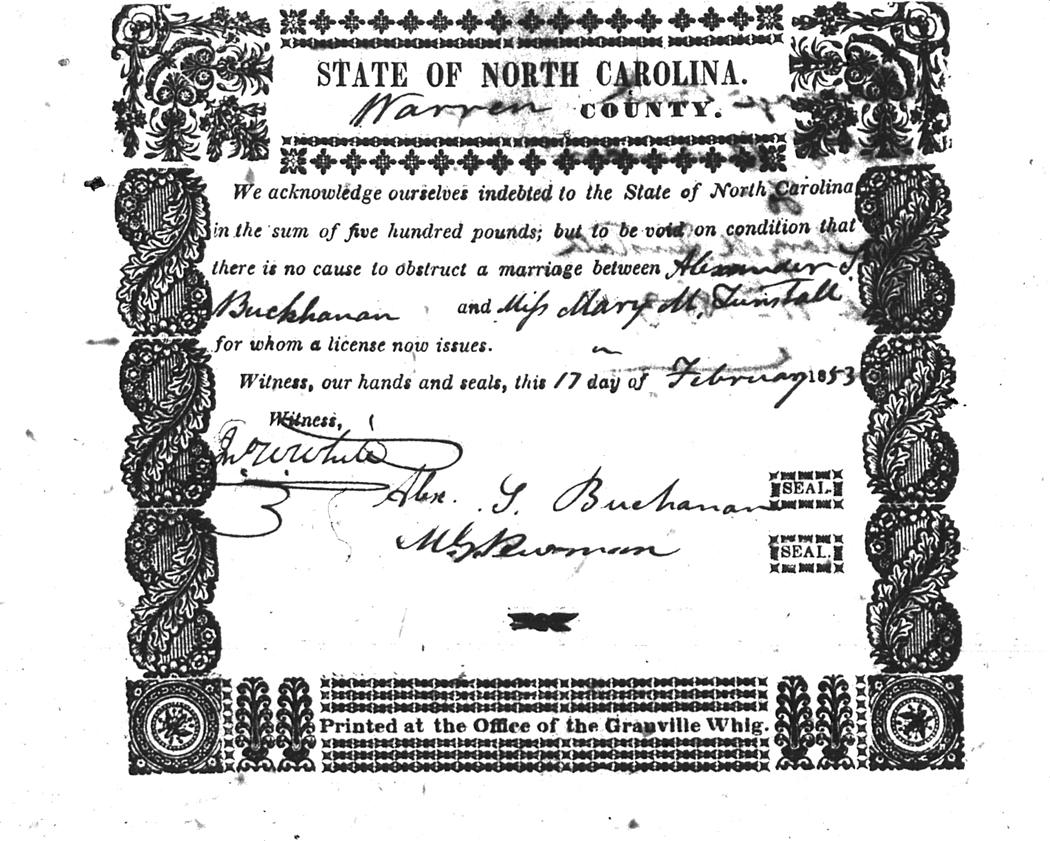 STATE OF NORTH CAROLINA.
Warren COUNTY.
We acknowledge ourselves indebted to the State of North Carolina
in the sum of five hundred pounds; but to be void on condition that
there is no cause to obstruct a marriage between Alexander S.
Buckhanan and Miss Mary M. Tunstall
for whom a license now issues.
Witness, our hands and seals, this 17 day of February 1853
Witness,
Jno W White
Alex. S. Buchanan SEAL.
SEAL.
Printed at the Office of the Granville Whig.